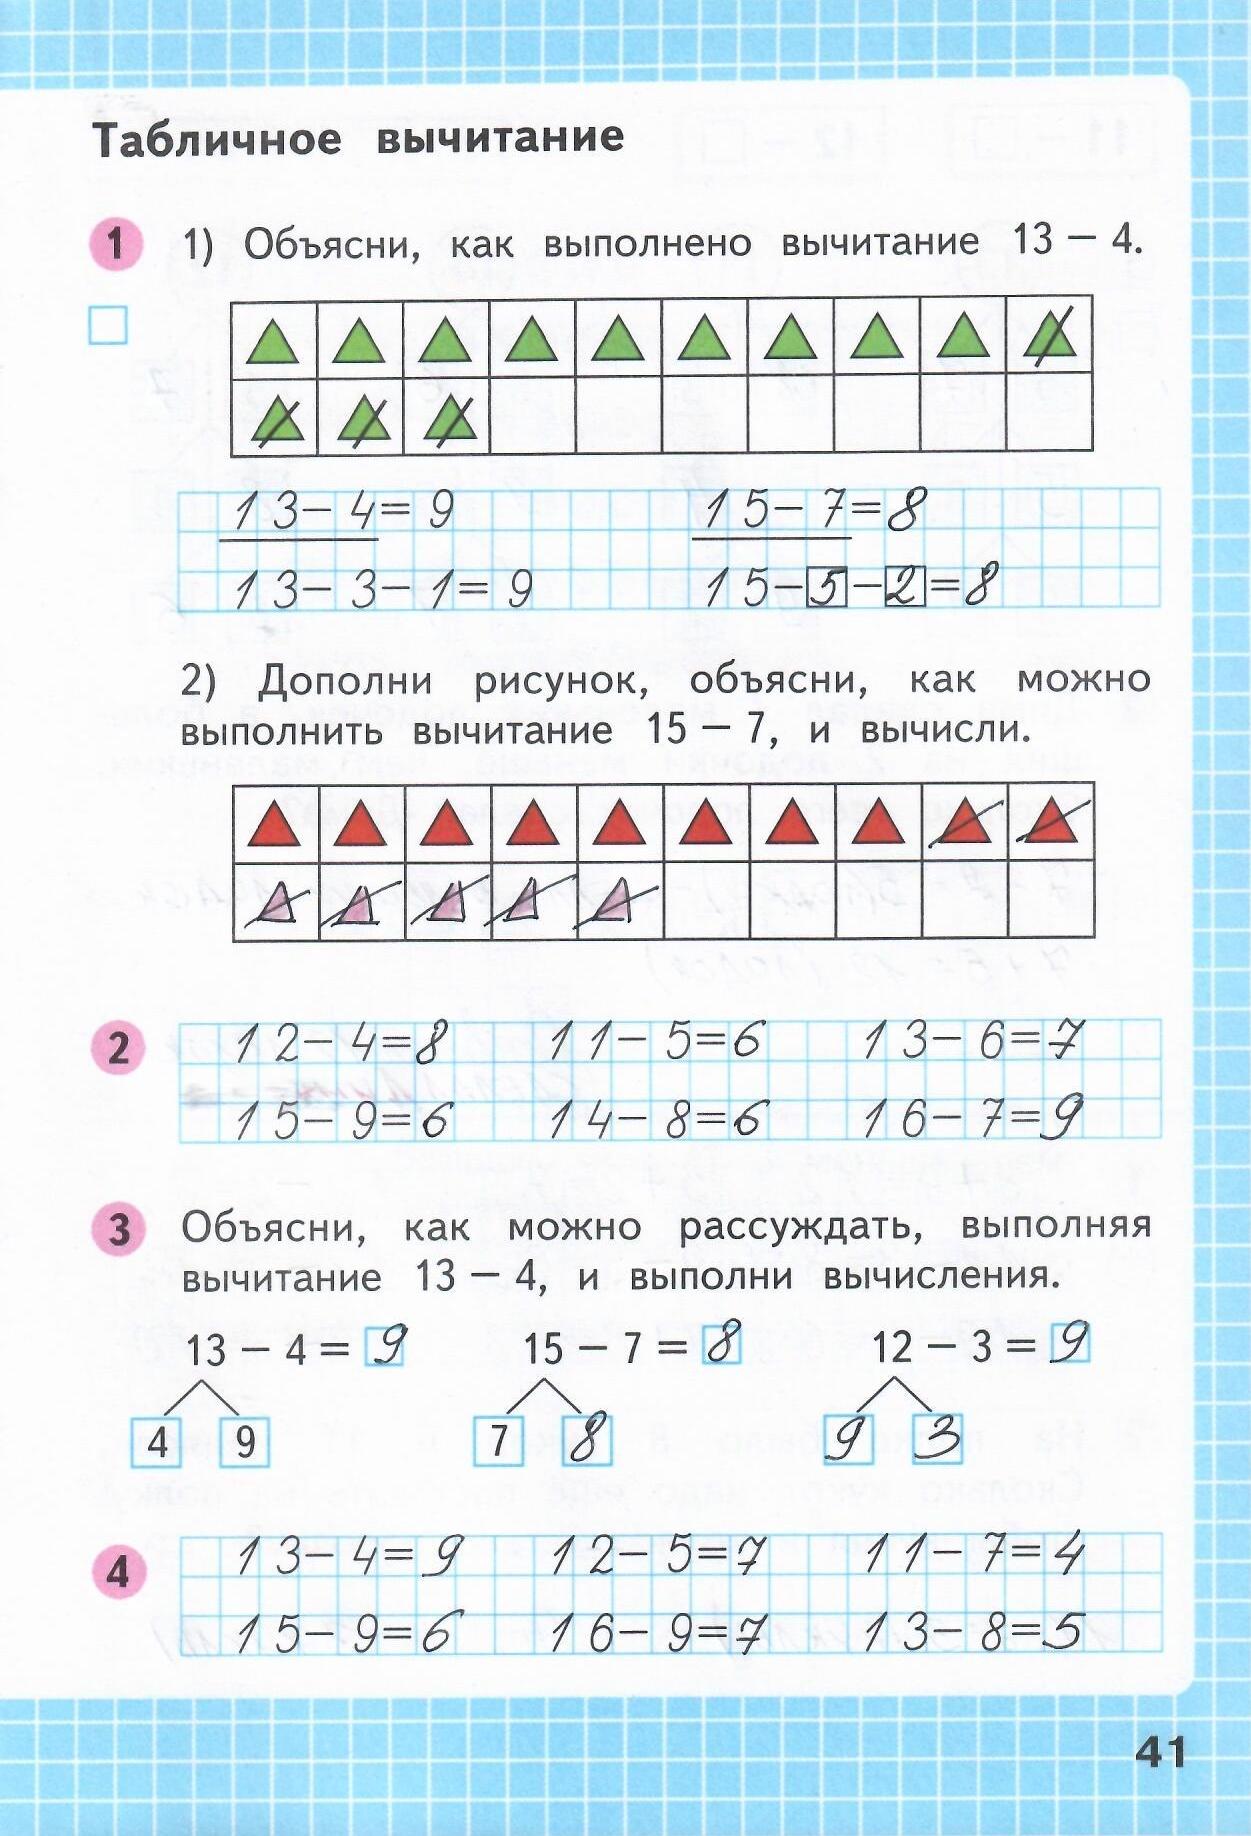 Табличное вычитание
1 1) Объясни, как выполнено вычитание 13 – 4.
13–4=9 15–7=8
13–3–1=9 15–5–2=8
2) Дополни рисунок, объясни, как можно
выполнить вычитание 15 – 7, и вычисли.
2 12–4=8 11–5=6 13–6=7
15–9=6 14–8=6 16–7=9
3 Объясни, как можно рассуждать, выполняя
вычитание 13 – 4, и выполни вычисления.
13 – 4 = 9 15 – 7 = 8 12 – 3 = 9
4 9 7 8 9 3
4 13–4=9 12–5=7 11–7=4
15–9=6 16–9=7 13–8=5
41